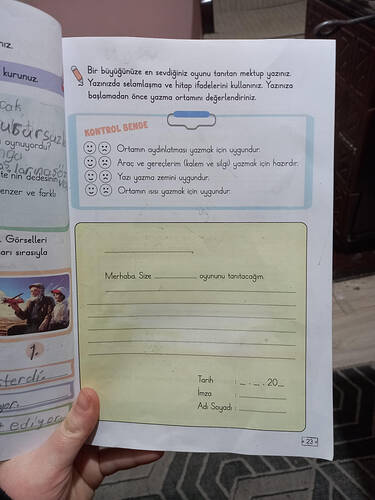 nız.
kurunuz.
oynuyordu?
te'nin dedesinin
enzer ve farklı
. Görselleri
arı sırasıyla
1.
sterdi.
yer.
ediyor
Bir büyüğünüze en sevdiğiniz oyunu tanıtan mektup yazınız.
Yazınızda selamlaşma ve hitap ifadelerini kullanınız. Yazınıza
başlamadan önce yazma ortamını değerlendiriniz.
KONTROL BENDE
Ortamın aydınlatması yazmak için uygundur.
Araç ve gereçlerim (kalem ve silgi) yazmak için hazırdır.
Yazı yazma zemini uygundur.
Ortamın ısısı yazmak için uygundur.
Merhaba. Size ____________ oyununu tanıtacağım.
Tarih : _ . _ . 20_
İmza : ____________
Adı Soyadı : ____________
23